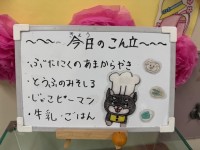 今日のこん立
・ぶたにくのあまからやき
・とうふのみそしる
・じゃこピーマン
・牛乳・ごはん